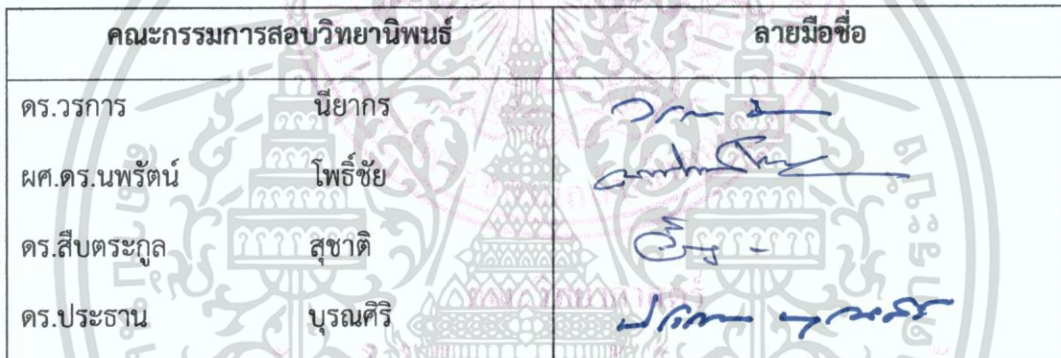 คณะกรรมการสอบวิทยานิพนธ์ ลายมือชื่อ
ดร.วรการ นียากร
ผศ.ดร.นพรัตน์ โพธิ์ชัย
ดร.สืบตระกูล สุชาติ
ดร.ประธาน บุรณศิริ